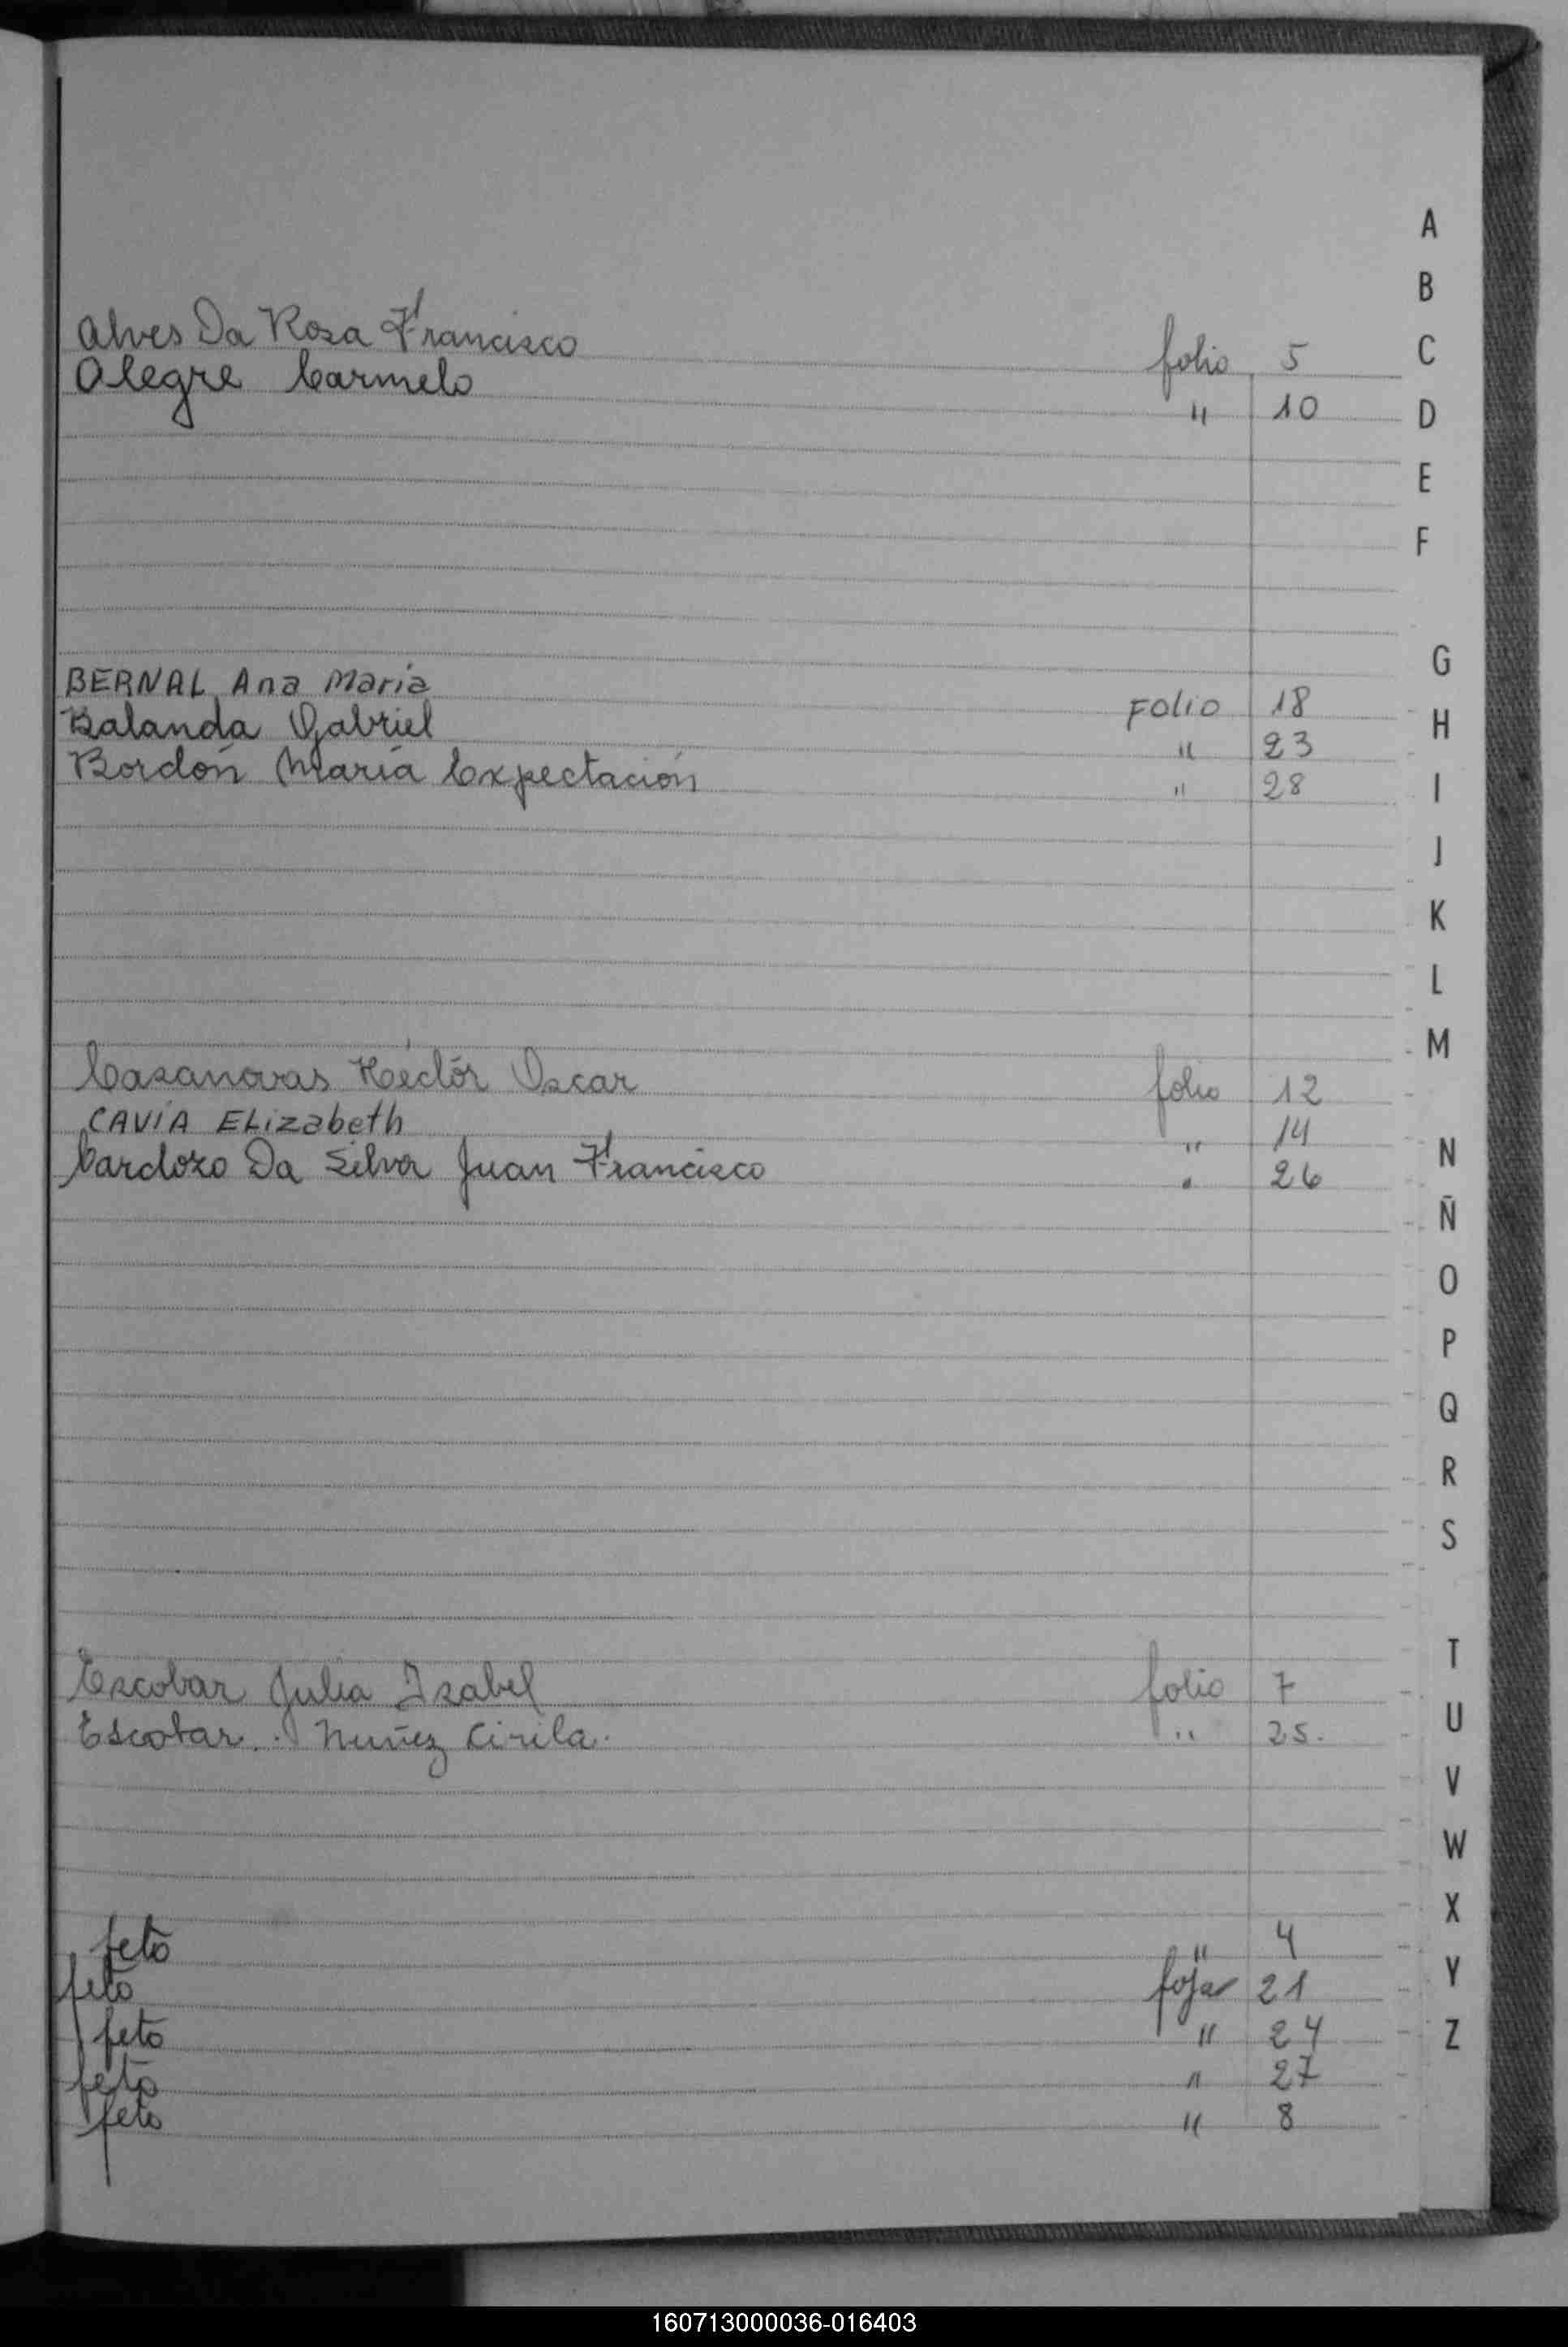 A
B
Alves Da Rosa Francisco folio 5
C
Alegre Carmelo " 10
D
E
F
G
BERNAL Ana Maria FOLIO 18
H
Balanda Gabriel " 23
Bordón María Expectación " 28
I
J
K
L
M
Casanovas Héctór Oscar folio 12
CAVIA ELizabeth " 14
N
Cardozo Da Silva Juan Francisco " 26
Ñ
O
P
Q
R
S
T
Escobar Julia Isabel folio 7
U
Escobar. Nuñez Cirila. " 25.
V
W
X
feto " 4
Y
feto foja 21
feto " 24
Z
feto " 27
feto " 8
160713000036-016403